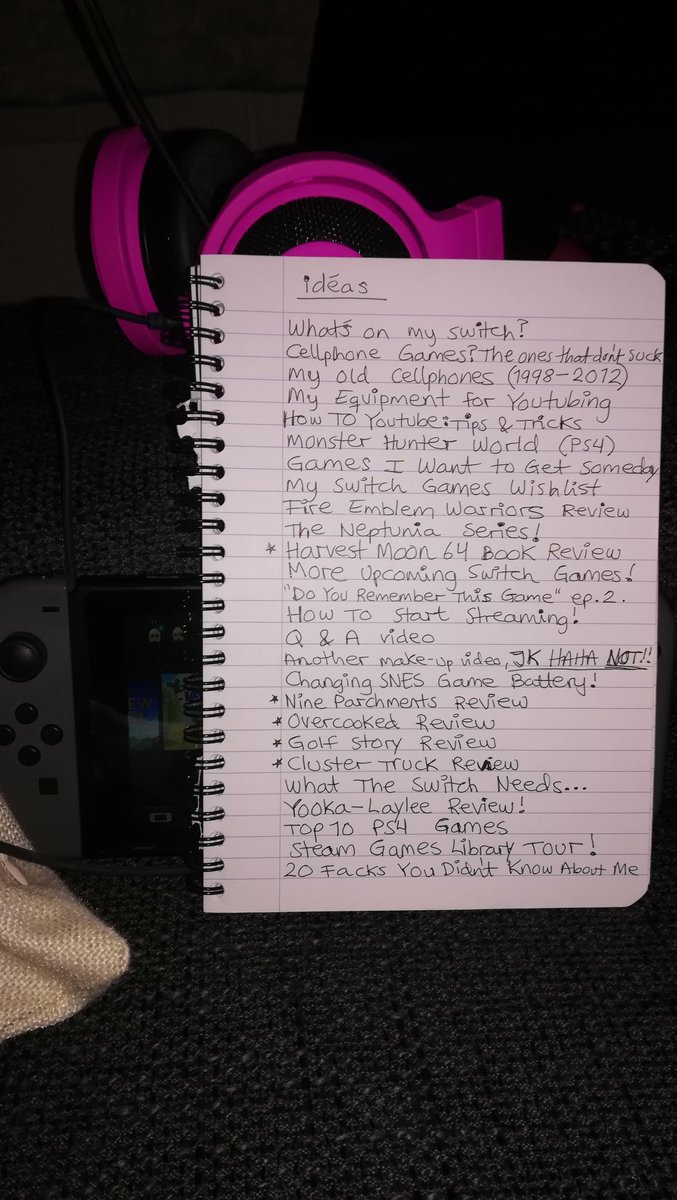 idéas
What's on my switch?
Cellphone Games? The ones that don't suck
My old cellphones (1998-2012)
My Equipment for Youtubing
How To Youtube: Tips & Tricks
Monster Hunter World (PS4)
Games I Want to Get Someday
My Switch Games Wishlist
Fire Emblem Warriors Review
The Neptunia Series!
* Harvest Moon 64 Book Review
More Upcoming Switch Games!
"Do You Remember This Game" ep.2.
How To Start Streaming!
Q & A video
Another make-up video, JK HAHA NOT!!
Changing SNES Game Battery!
* Nine Parchments Review
* Overcooked Review
* Golf Story Review
* Cluster Truck Review
What The Switch Needs...
Yooka-Laylee Review!
Top 10 PS4 Games
Steam Games Library Tour!
20 Facks You Didn't Know About Me